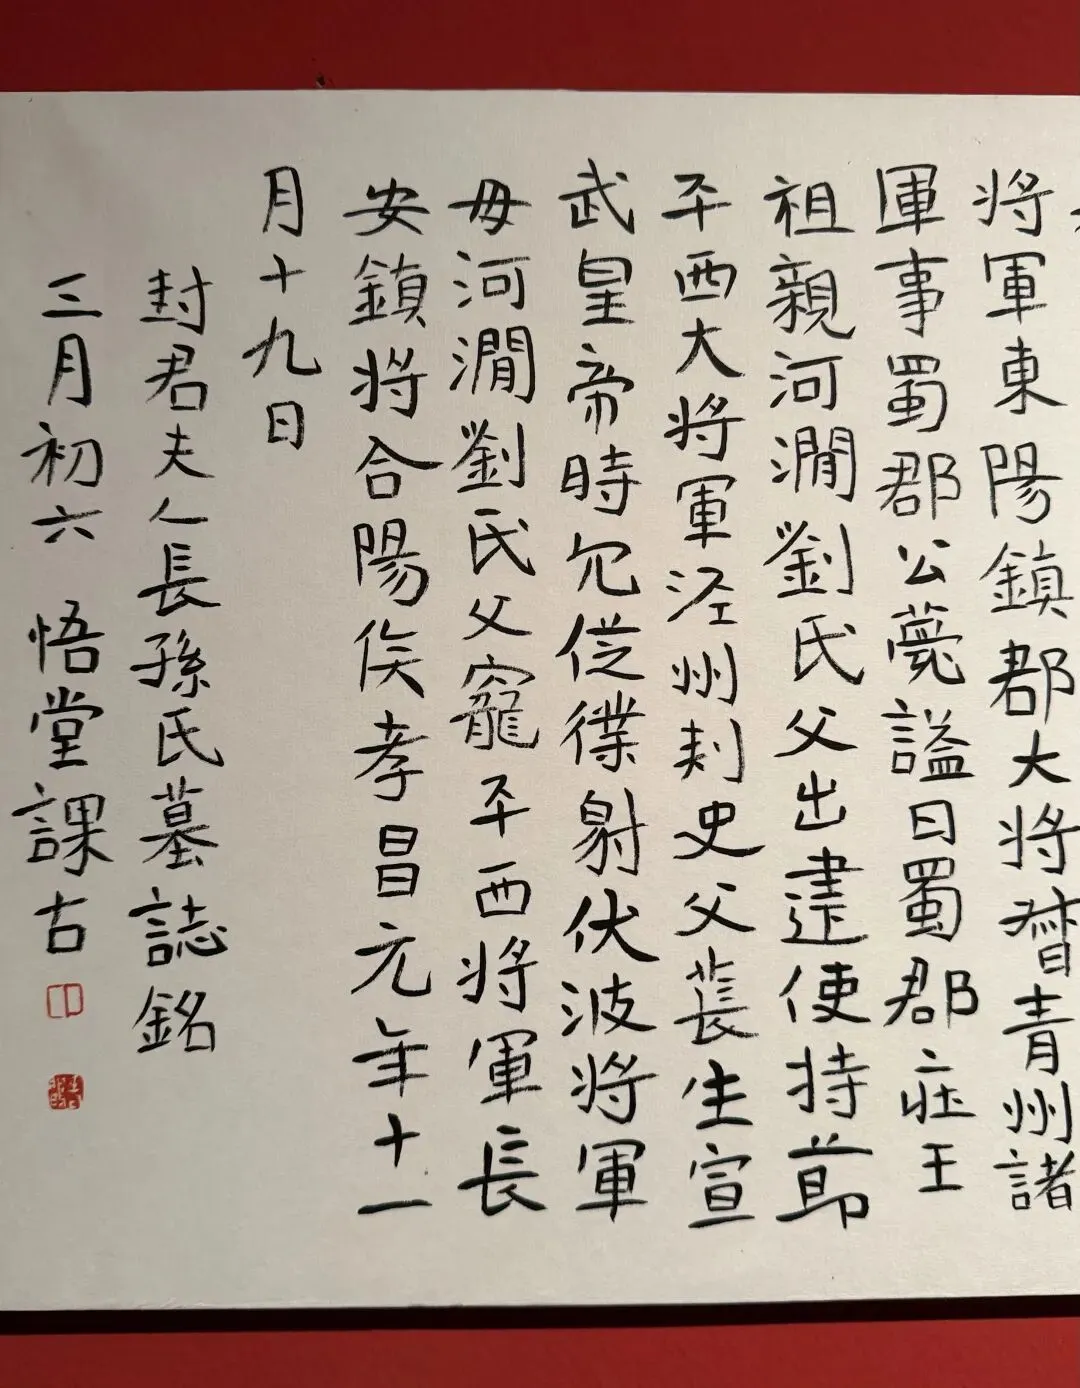 將軍東陽鎮都大将督青州諸
軍事蜀郡公薨謚曰蜀郡莊王
祖親河澗劉氏父出建使持節
平西大将軍泾州刾史父萇生宣
武皇帝時冗從僕射伏波将軍
母河澗劉氏父寵平西将軍長
安鎮将合陽侯孝昌元年十一
月十九日
封君夫人長孫氏墓誌銘
三月初六 悟堂課古